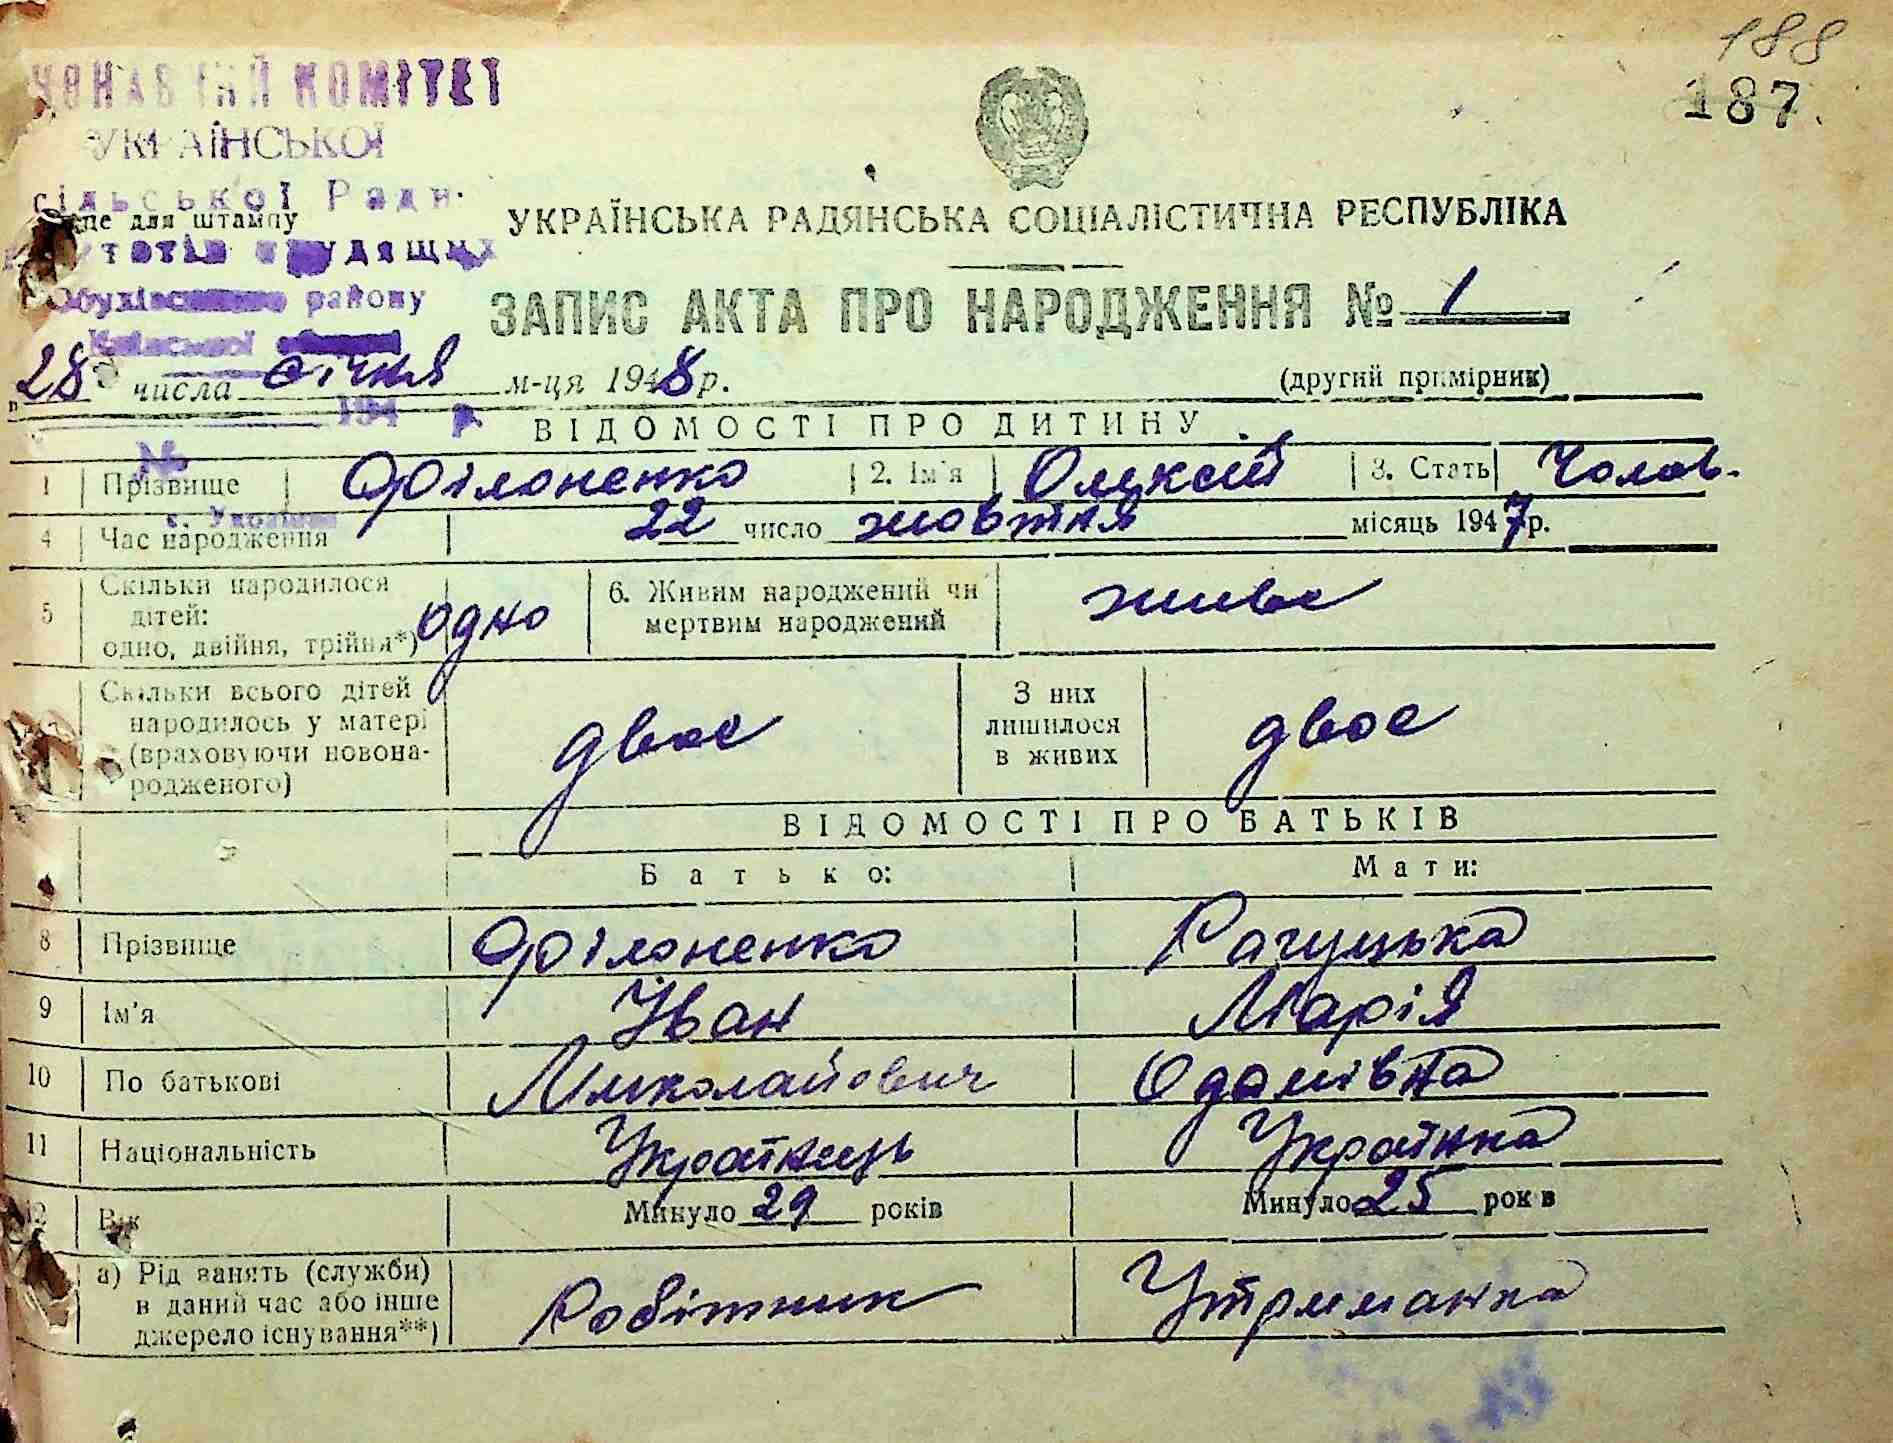 188
187.
КОМІТЕТ
УКРАЇНСЬКОЇ
сільської Ради
для штампу
трудящих
району
Київської
194 р.
№
с. Українка
УКРАЇНСЬКА РАДЯНСЬКА СОЦІАЛІСТИЧНА РЕСПУБЛІКА
ЗАПИС АКТА ПРО НАРОДЖЕННЯ № 1
28 числа січня м-ця 1948 р. (другий примірник)
ВІДОМОСТІ ПРО ДИТИНУ
1 Прізвище Філоненко 2. Ім'я Олексій 3. Стать Чолов.
4 Час народження 22 число жовтня місяць 1947 р.
5 Скільки народилося дітей: одно, двійня, трійня*) одно 6. Живим народжений чи мертвим народжений живе
Скільки всього дітей народилось у матері (враховуючи новонародженого) двоє З них лишилося в живих двоє
ВІДОМОСТІ ПРО БАТЬКІВ
Батько: Мати:
8 Прізвище Філоненко Рагуцька
9 Ім'я Іван Марія
10 По батькові Миколайович Одамівна
11 Національність Українець Українка
12 Вік Минуло 29 років Минуло 25 рок в
а) Рід занять (служби) в даний час або інше джерело існування**) Робітник Утриманка